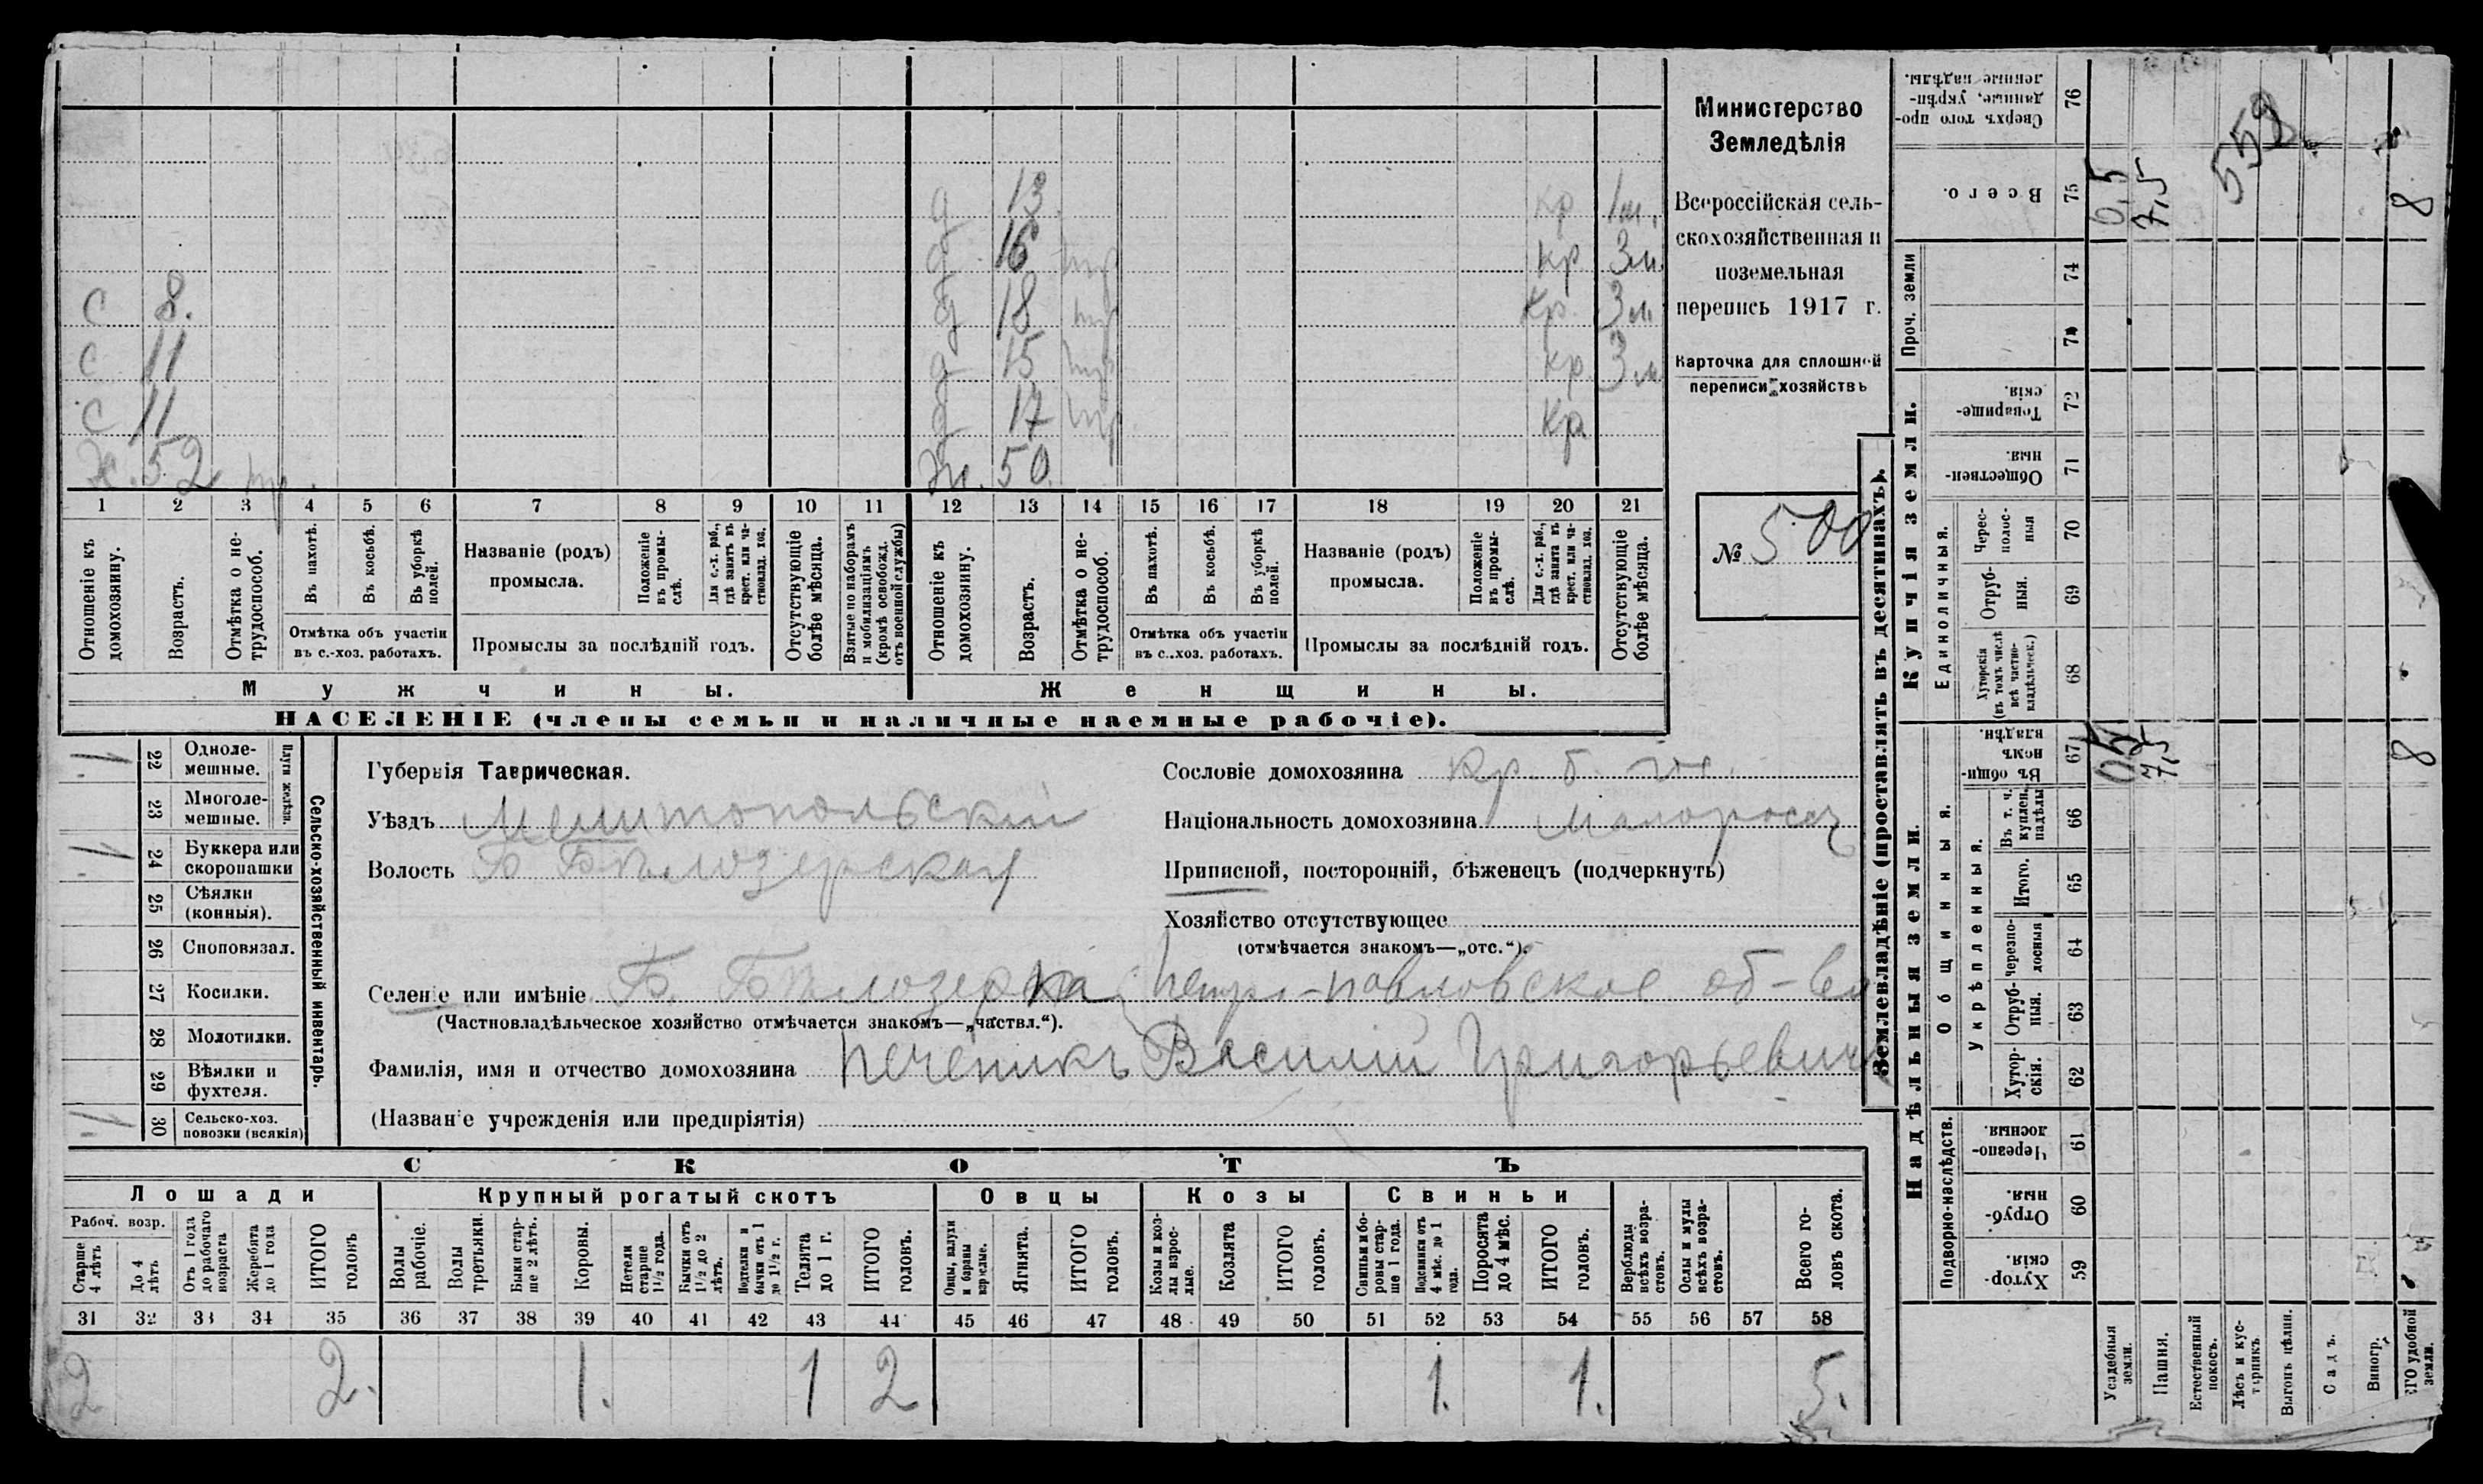 Министерство
Земледѣлія
Всероссійская сель-
скохозяйственная и
поземельная
перепись 1917 г.
Карточка для сплошной
переписи хозяйствъ
№ 500
д 13 кр 1 м.
д 16 кр 3 м.
с 8. д 18 кр. 3 м
с 11 д 15 кр. 3 м
с 11 д 17 кр
х. 52 ж. 50
1 2 3 4 5 6 7 8 9 10 11 12 13 14 15 16 17 18 19 20 21
Отношеніе къ домохозяину.
Возрастъ.
Отмѣтка о не-трудоспособ.
Въ пахотѣ.
Въ косьбѣ.
Въ уборкѣ полей.
Отмѣтка объ участіи въ с.-хоз. работахъ.
Названіе (родъ) промысла.
Положеніе въ промы-слѣ.
Для с.-х. раб., гдѣ занятъ въ крест. или ча-стновлад. хоз.
Промыслы за послѣдній годъ.
Отсутствующіе болѣе мѣсяца.
Взятые по наборамъ и мобилизаціямъ (кромѣ освобожд. отъ военной службы)
Отношеніе къ домохозяину.
Возрастъ.
Отмѣтка о не-трудоспособ.
Въ пахотѣ.
Въ косьбѣ.
Въ уборкѣ полей.
Отмѣтка объ участіи въ с.-хоз. работахъ.
Названіе (родъ) промысла.
Положеніе въ промы-слѣ.
Для с.-х. раб., гдѣ занята въ крест. или ча-стновлад. хоз.
Промыслы за послѣдній годъ.
Отсутствующіе болѣе мѣсяца.
Мужчины. Женщины.
НАСЕЛЕНІЕ (члены семьи и наличные наемные рабочіе).
Сельско-хозяйственный инвентарь.
Плуги желѣзн.
1 22 Одноле-мешные.
23 Многоле-мешные.
1 24 Буккера или скоропашки
25 Сѣялки (конныя).
26 Сноповязал.
27 Косилки.
28 Молотилки.
29 Вѣялки и фухтеля.
1 30 Сельско-хоз. повозки (всякія)
Губернія Таврическая.
Уѣздъ Мелитопольскій
Волость Б Бѣлозерская
Сословіе домохозяина кр. б.
Національность домохозяина Малоросъ
Приписной, посторонній, бѣженецъ (подчеркнуть)
Хозяйство отсутствующее
(отмѣчается знакомъ—„отс.“).
Селеніе или имѣніе Б. Бѣлозерка Петро-павловское об-во
(Частновладѣльческое хозяйство отмѣчается знакомъ—„частвл.“).
Фамилія, имя и отчество домохозяина Печеникъ Василій Григорьевичъ
(Названіе учрежденія или предпріятія)
СКОТЪ
Лошади Крупный рогатый скотъ Овцы Козы Свиньи
Рабоч. возр.
Старше 4 лѣтъ
До 4 лѣтъ
Отъ 1 года до рабочаго возраста
Жеребята до 1 года
ИТОГО головъ
Волы рабочіе.
Волы третьяки.
Быки стар-ше 2 лѣтъ.
Коровы.
Нетели старше 1½ года.
Бычки отъ 1½ до 2 лѣтъ.
Подтелки и бычки отъ 1 до 1½ г.
Телята до 1 г.
ИТОГО головъ.
Овцы, валухи и бараны взрослые.
Ягнята.
ИТОГО головъ.
Козы и коз-лы взрос-лые.
Козлята
ИТОГО головъ.
Свиньи и бо-ровы стар-ше 1 года.
Подсвинки отъ 4 мѣс. до 1 года.
Поросята до 4 мѣс.
ИТОГО головъ.
Верблюды всѣхъ возра-стовъ.
Ослы и мулы всѣхъ возра-стовъ.
Всего го-ловъ скота.
31 32 33 34 35 36 37 38 39 40 41 42 43 44 45 46 47 48 49 50 51 52 53 54 55 56 57 58
2 2. 1. 1 2 1. 1. 5.
Землевладѣніе (проставлять въ десятинахъ).
Купчія земли.
Сверхъ того про-данные, укрѣп-ленные надѣлы. 76
Всего. 75 0,5 7,5 559 8
Проч. земли 74
Товарище-скія. 72
Обществен-ныя. 71
Единоличныя.
Черес-полос-ныя 70
Отруб-ныя. 69
Хуторскія (въ томъ числѣ всѣ частно-владѣльческ.) 68
Надѣльныя земли.
Общинныя.
Въ общин-номъ владѣн. 67 0,5 7,5 8
Въ т. ч. куплен. надѣлы 66
Укрѣпленныя.
Итого. 65
Черезпо-лосныя 64
Отруб-ныя. 63
Хутор-скія. 62
Подворно-наслѣдств.
Черезпо-лосныя. 61
Отруб-ныя. 60
Хутор-скія. 59
Усадебныя земли.
Пашня.
Естественный покосъ.
Лѣсъ и кус-тарникъ.
Выгонъ цѣлин.
Садъ.
Виногр.
ЕГО удобной земли.